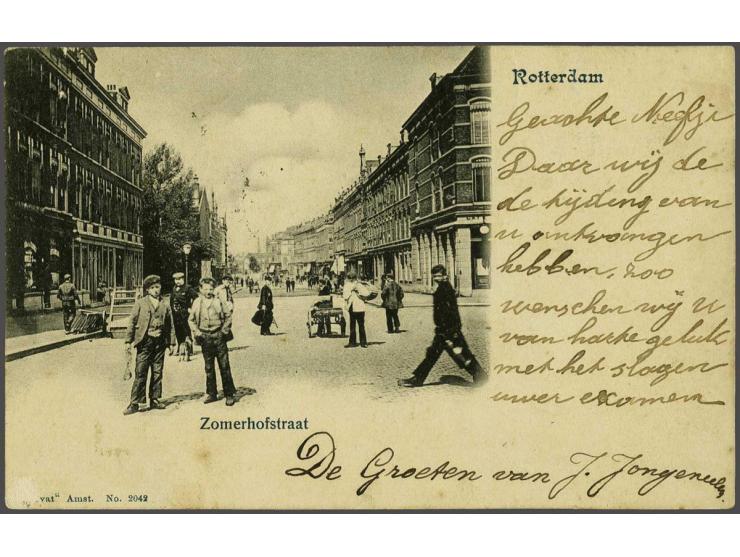 Rotterdam
Geachte Neefje
Daar wij de
de tijding van
u ontvangen
hebben, zoo
wenschen wij u
van harte geluk
met het slagen
uwer examen
Zomerhofstraat
De Groeten van J. Jongeneelen.
vat" Amst. No. 2042